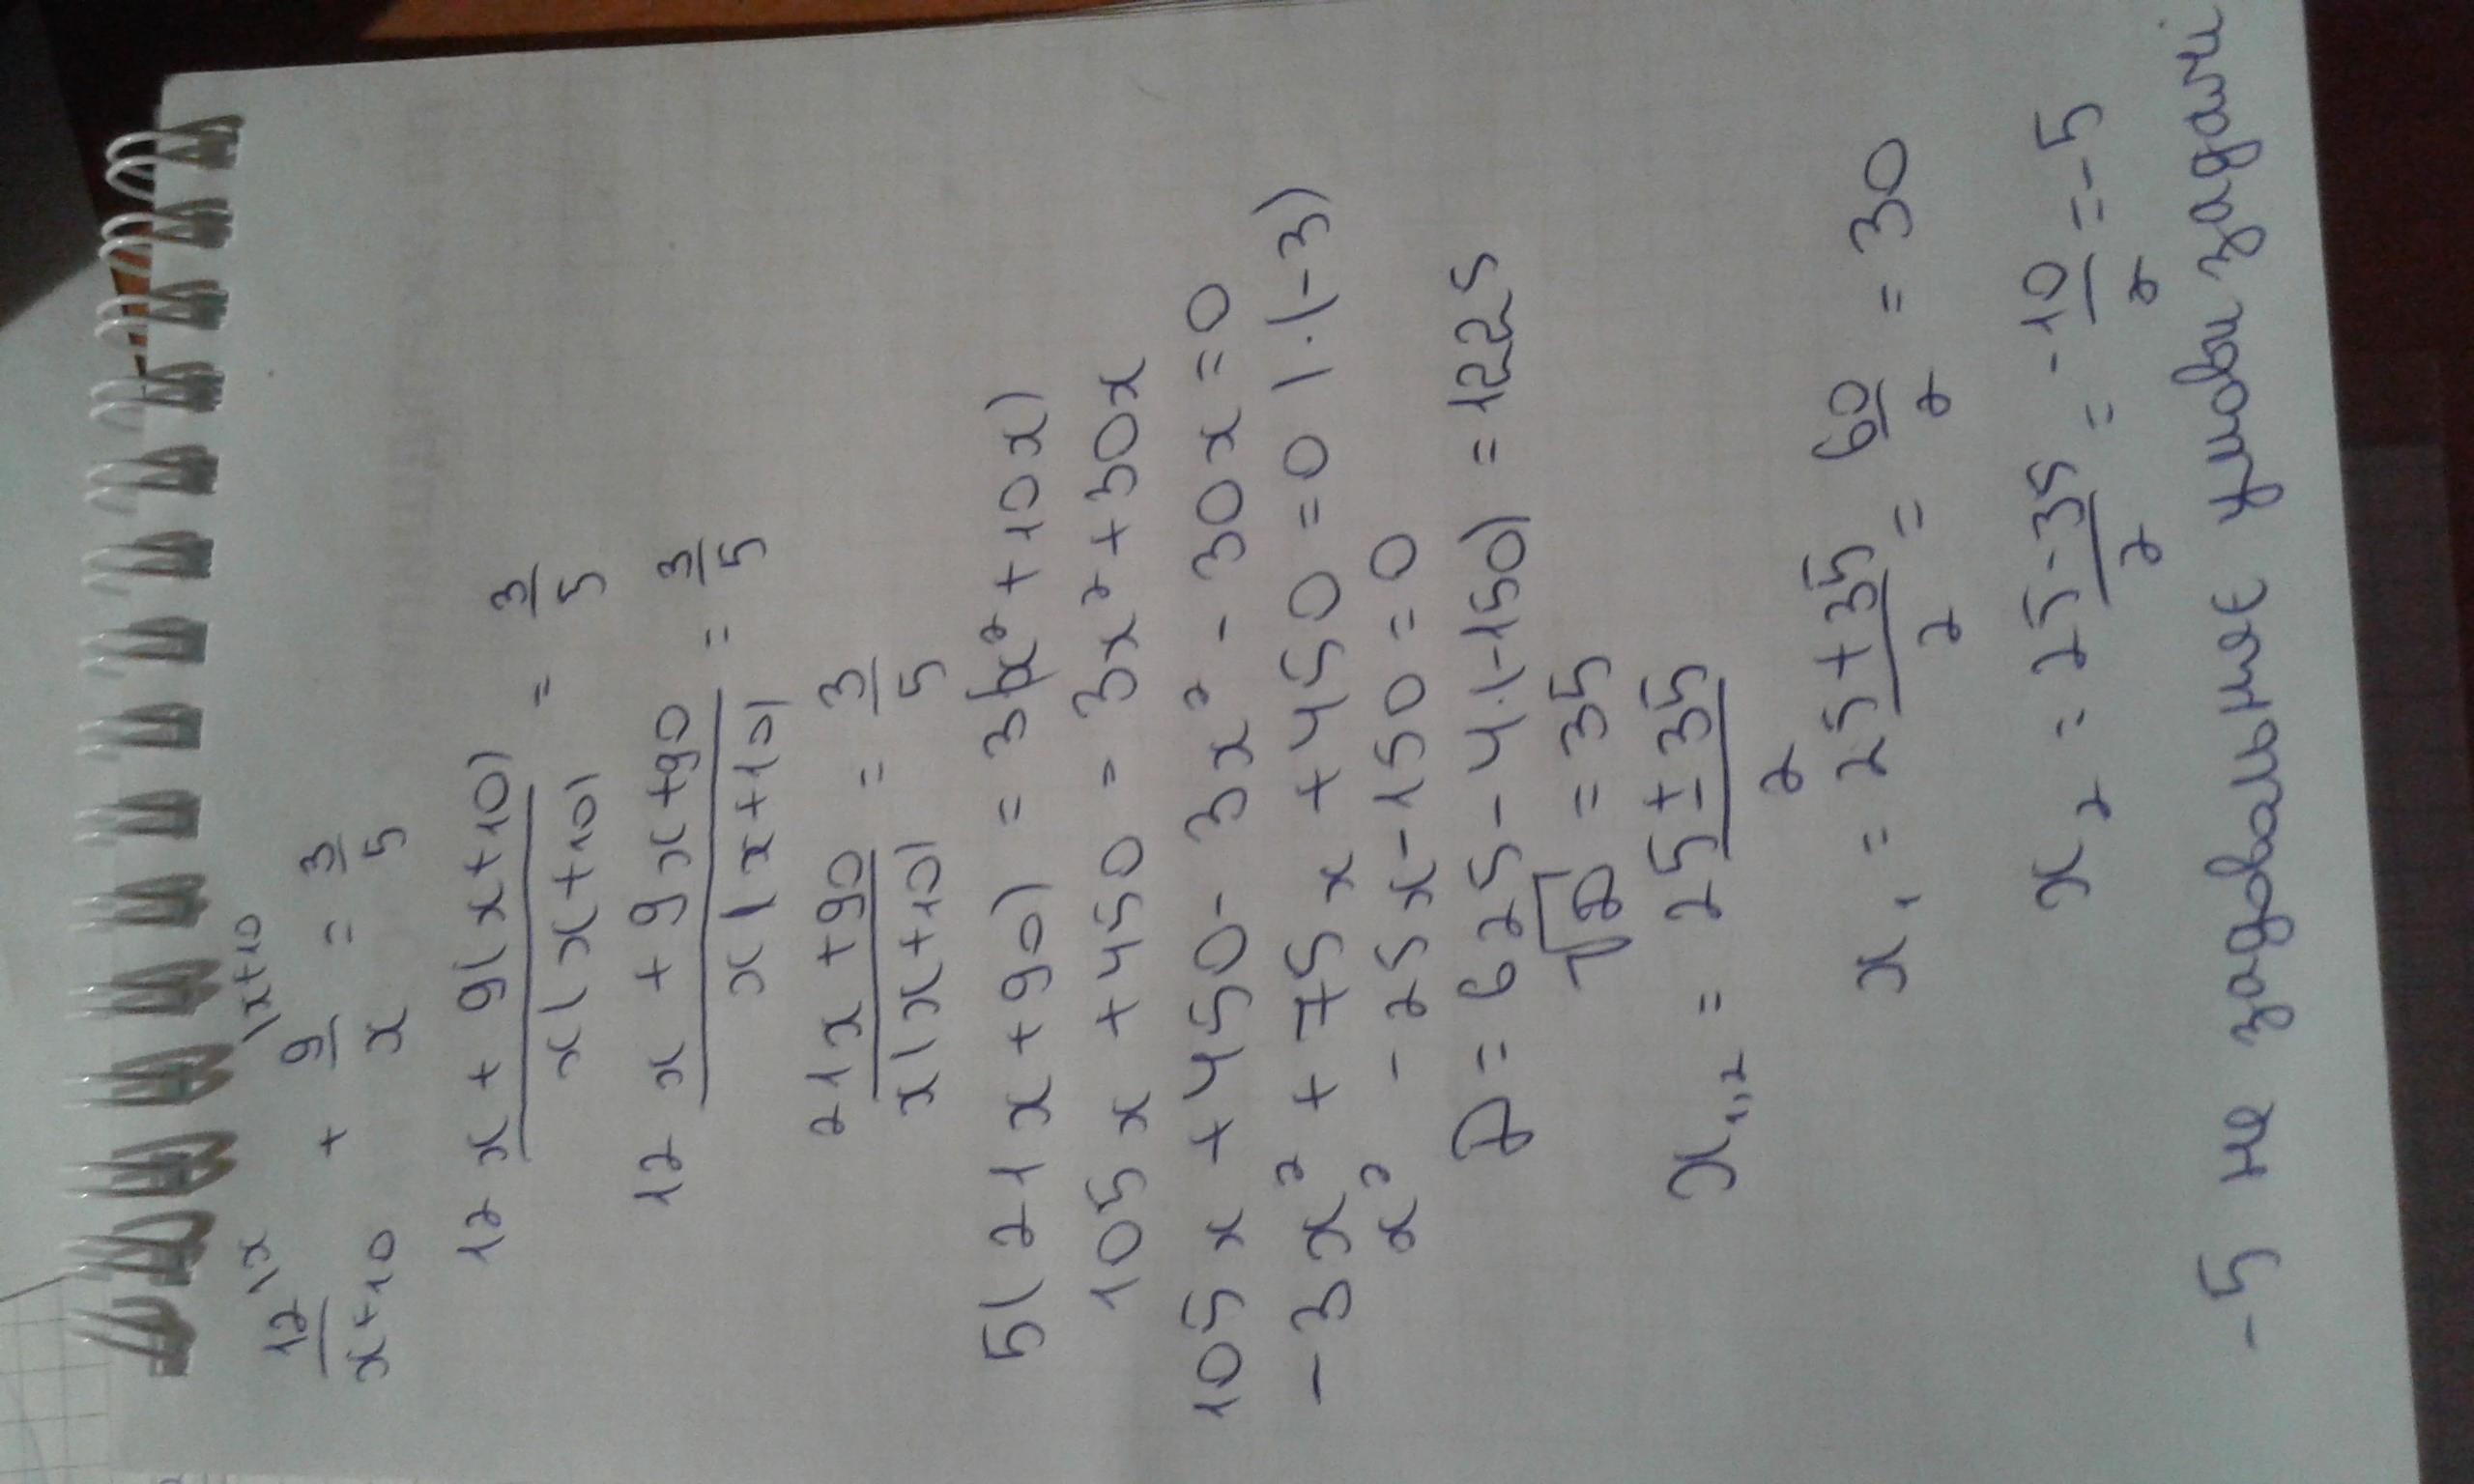 12^{\x}/(x+10) + 9^{\x+10}/x = 3/5
(12x + 9(x+10))/(x(x+10)) = 3/5
(12x + 9x + 90)/(x(x+10)) = 3/5
(21x + 90)/(x(x+10)) = 3/5
5(21x + 90) = 3(x² + 10x)
105x + 450 = 3x² + 30x
105x + 450 - 3x² - 30x = 0
-3x² + 75x + 450 = 0 | · (-3)
x² - 25x - 150 = 0
D = 625 - 4·(-150) = 1225
√D = 35
x₁,₂ = (25 ± 35)/2
x₁ = (25 + 35)/2 = 60/2 = 30
x₂ = (25 - 35)/2 = -10/2 = -5
-5 не задовольняє умови задачі